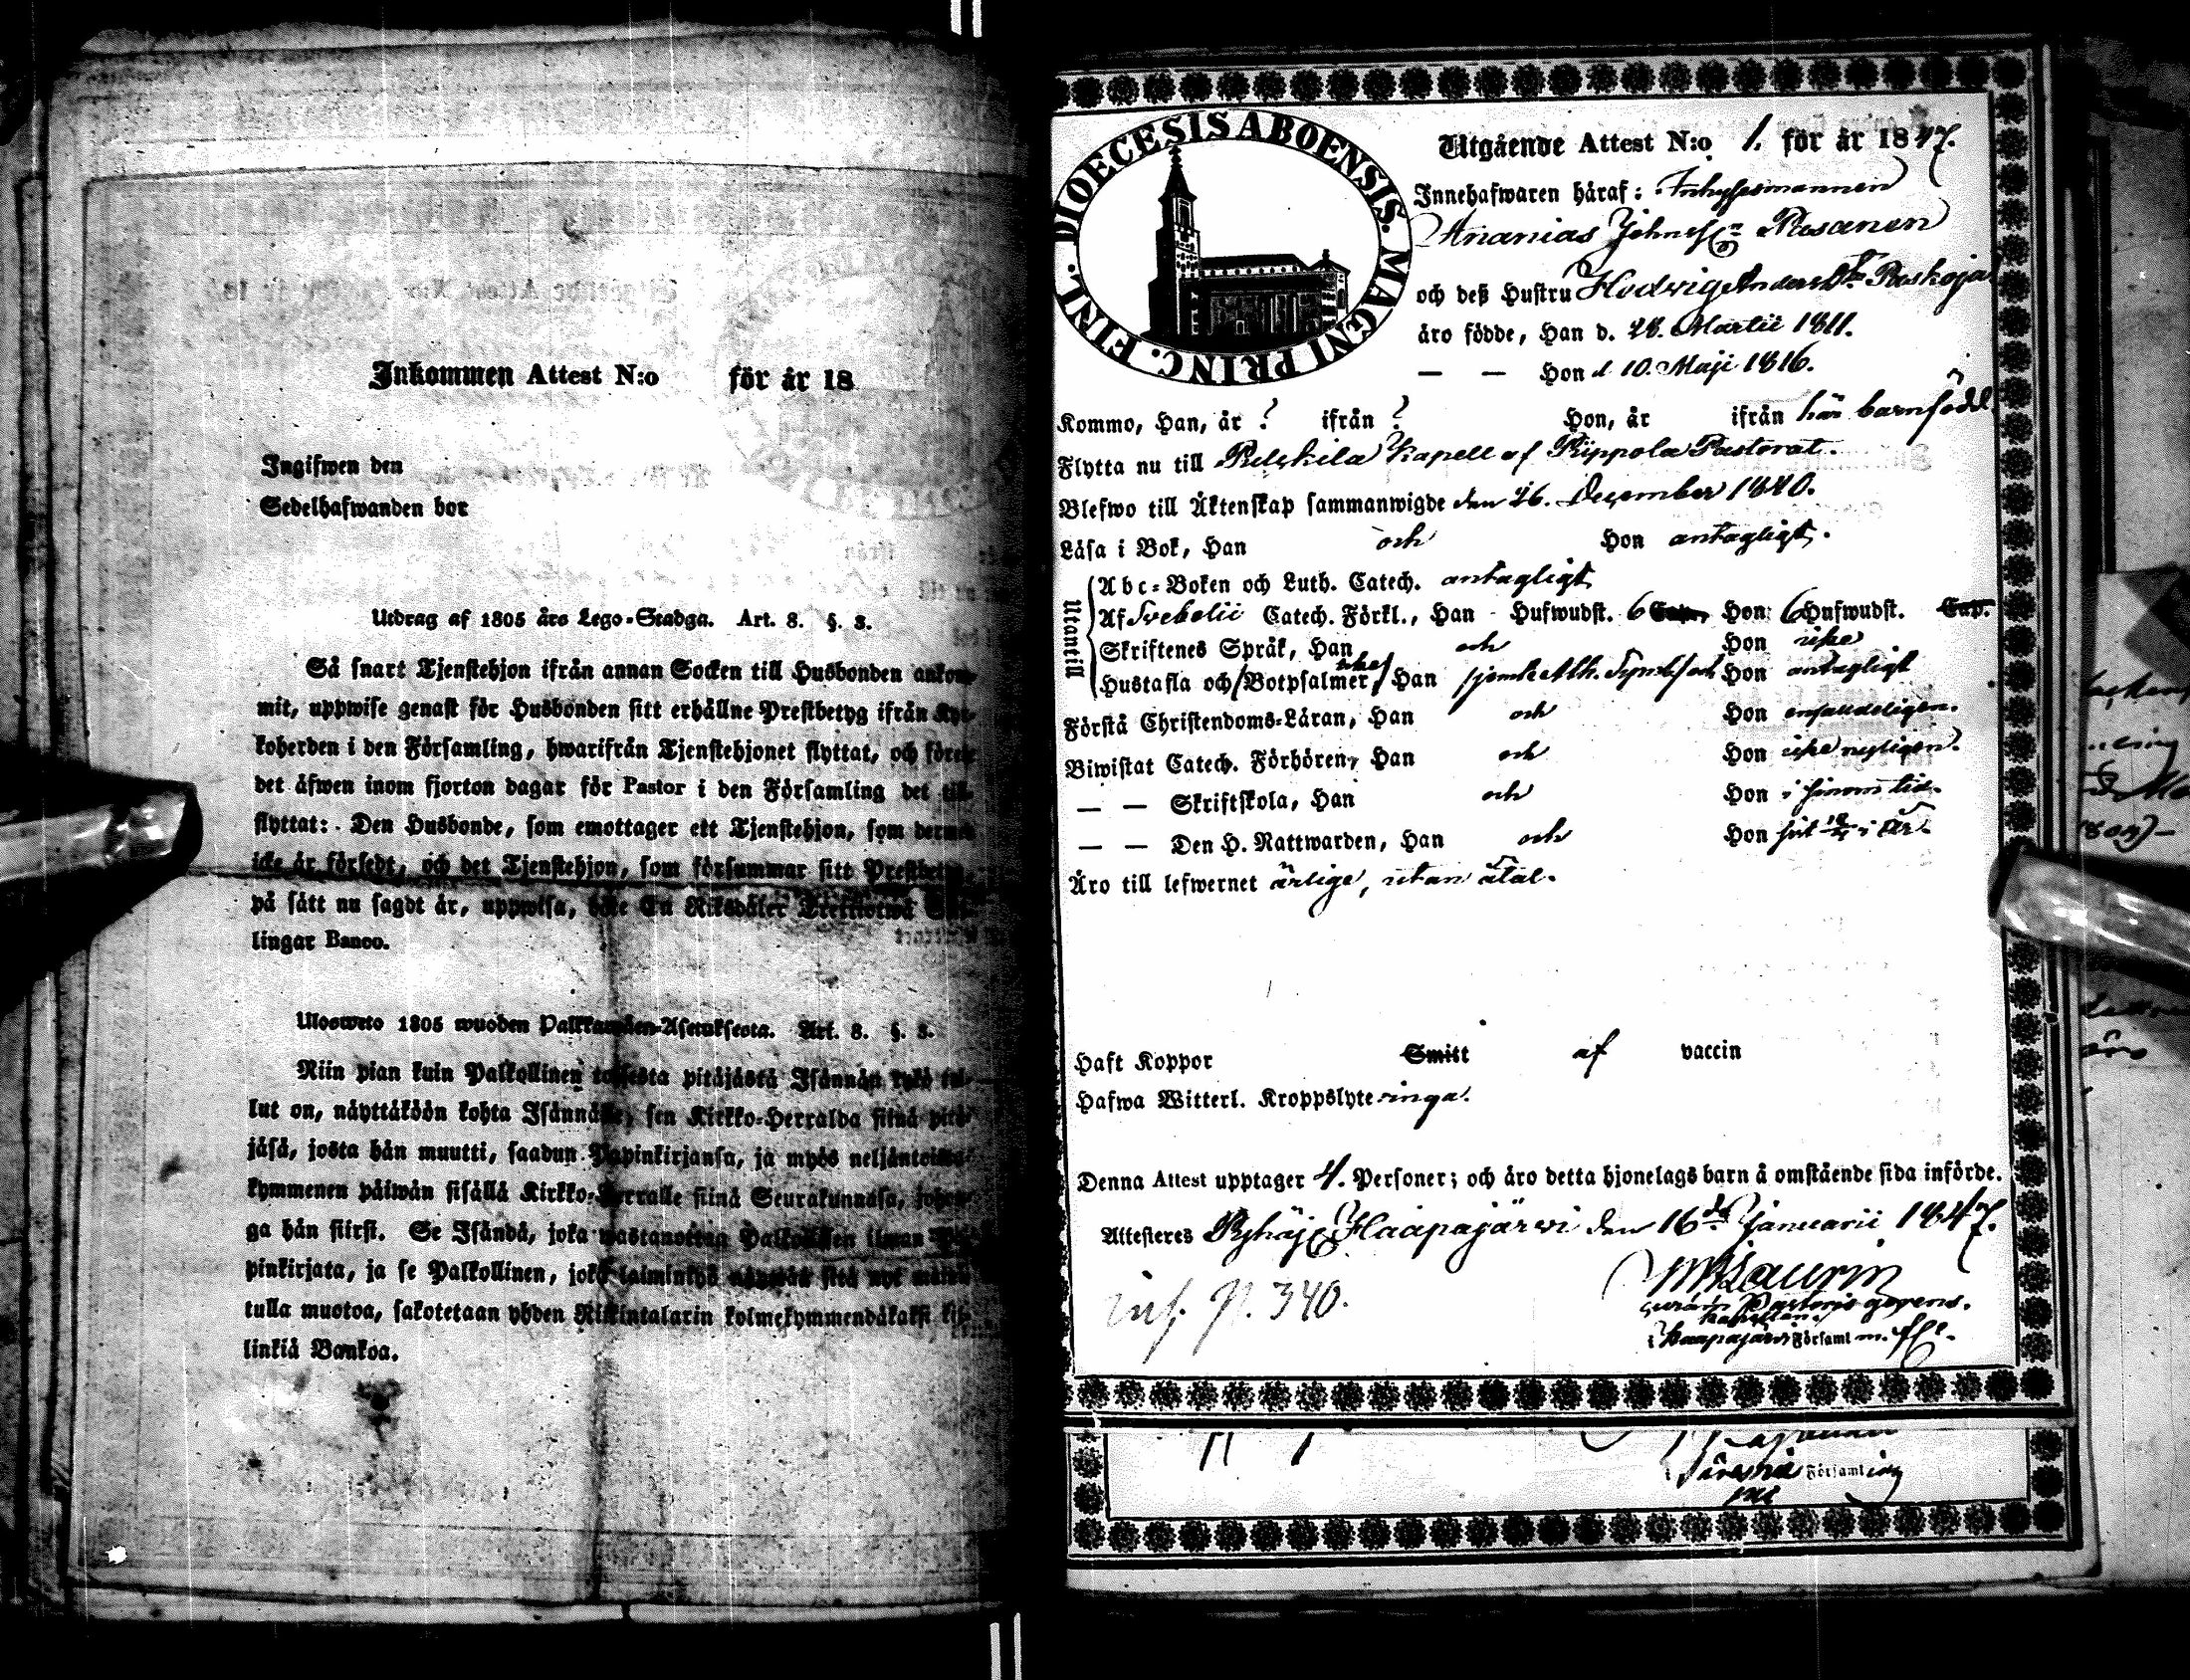 Inkommen Attest N:o för år 18
Ingifwen den
Sedelhafwanden bor
Utdrag af 1805 års Lego-Stadga. Art. 8. §. 3.
Så snart Tjenstehjon ifrån annan Socken till Husbonden ankom-
mit, uppwise genast för Husbonden sitt erhållne Prestbetyg ifrån Kyr-
koherden i den Församling, hwarifrån Tjenstehjonet flyttat, och förete
det äfwen inom fjorton dagar för Pastor i den Församling det till-
flyttat: Den Husbonde, som emottager ett Tjenstehjon, som dermed
icke är försedt, och det Tjenstehjon, som försummar sitt Prestbetyg,
på sätt nu sagdt är, uppwisa, böte En Riksdaler Trettiotwå Skil-
lingar Banco.
Ulosweto 1805 wuoden Palkkawäen-Asetuksesta. Art. 8. §. 3.
Niin pian kuin Palkollinen toisesta pitäjästä Isännän tykö tul-
lut on, näyttäköön kohta Isännälle, sen Kirkko-Herralda siinä pitä-
jäsä, josta hän muutti, saadun Papinkirjansa, ja myös neljäntoista-
kymmenen päiwän sisällä Kirkko-Herralle siinä Seurakunnasa, johon-
ga hän siirsi. Se Isändä, joka wastanottaa Palkollisen ilman Pa-
pinkirjata, ja se Palkollinen, joka laiminlyö näyttää sitä nyt mainit-
tulla muotoa, sakotetaan yhden Riikintalarin kolmekymmendäkaksi kil-
linkiä Bankoa.
DIOECESIS ABOENSIS. MAGNI PRINC. FINL.
Utgående Attest N:o 1. för år 1847.
Innehafwaren häraf: Inhysesmannen
Ananias Johnss:n
och deß Hustru Hedwig Andersdr
äro födde, Han d. 28. Martii 1811.
— — Hon d 10. Maji 1816.
Kommo, Han, år ? ifrån ? Hon, år ifrån här barnfödd.
Flytta nu till Pulkkila Kapell af Piippola Pastorat.
Blefwo till Äktenskap sammanwigde den 26. December 1840.
Läsa i Bok, Han och Hon antagligt.
Utantill
Abc-Boken och Luth. Catech. antagligt
Af Svebelii Catech. Förkl., Han Hufwudst. 6 Cap. Hon 6 Hufwudst. Cap.
Skriftenes Språk, Han och Hon icke
Hustafla och Botpsalmer, Han jemte Ath. Symb. och Hon antagligt
Förstå Christendoms-Läran, Han och Hon enfaldeligen.
Biwistat Catech. Förhören, Han och Hon icke
— — Skriftskola, Han och Hon i sinom tid.
— — Den H. Nattwarden, Han och Hon sist i År.
Äro till lefwernet ärlige, utan åtal.
Haft Koppor Smitt af vaccin
Hafwa Witterl. Kroppslyte inga.
Denna Attest upptager 4. Personer; och äro detta hjonelags barn å omstående sida införde.
Attesteres Pyhäj: Haapajärwi den 16de Januarii 1847.
inf. P. 340.
Laurin
curam Pastoris gerens.
Kapellan
i Haapajärvi Församl m. fl.
Församling